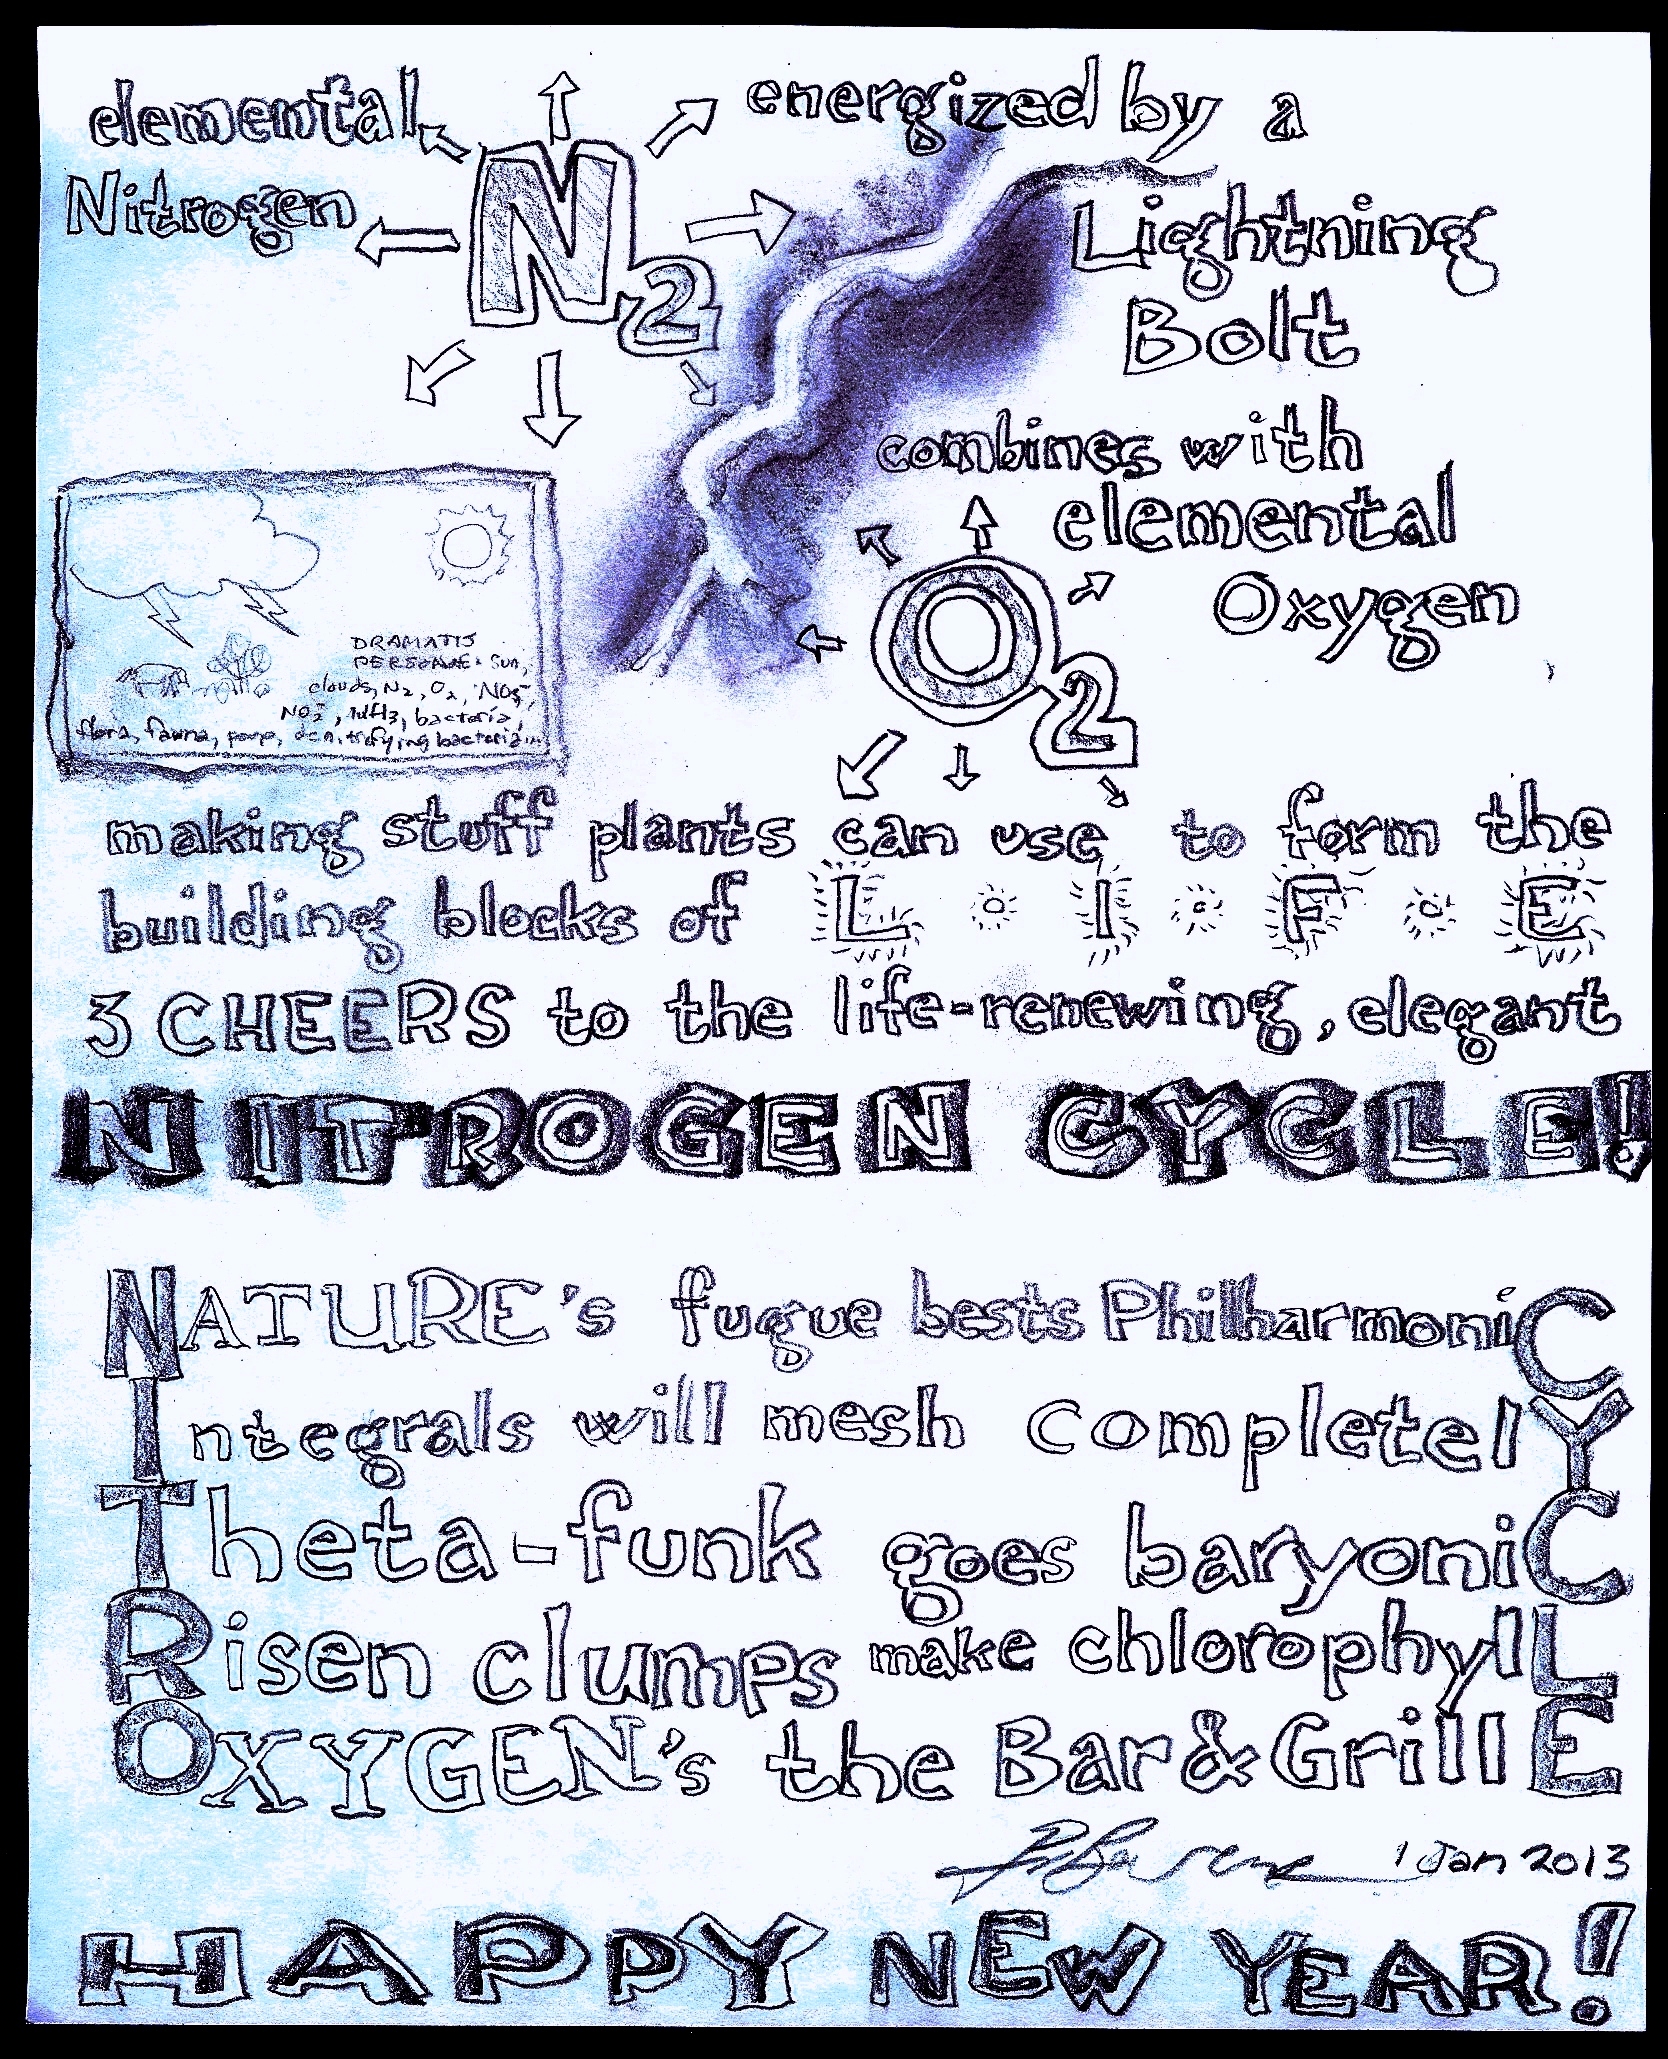 elemental
Nitrogen
N2
energized by a
Lightning
Bolt
combines with
elemental
Oxygen
O2
DRAMATIS
PERSONAE: Sun,
clouds, N2, O2, NO3-,
NO2-, NH3, bacteria,
flora, fauna, poop, denitrifying bacteria...
making stuff plants can use to form the
building blocks of L·I·F·E
3 CHEERS to the life-renewing, elegant
NITROGEN CYCLE!
NATURE's fugue bests PhilharmoniC
Integrals will mesh completelY
Theta-funk goes baryoniC
Risen clumps make chlorophylL
OXYGEN's the Bar&GrillE
1 Jan 2013
HAPPY NEW YEAR!